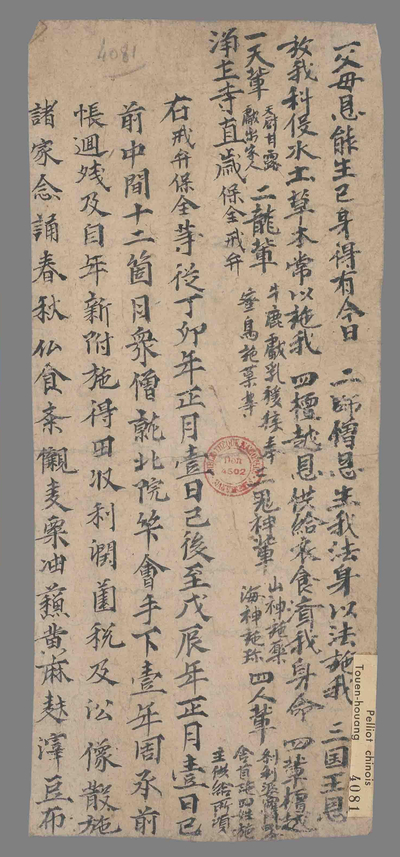 一父母恩能生己身得有今日 二師僧恩生我法身以法施我 三国王恩
放我科侵水土草木常以施我 四檀越恩供給衣食濟我身命 四輩檀越
一天輩 天厨甘露 獻出家人 二龍輩 牛鹿獻乳 猿猴奉 三鬼神輩 山神施藥 海神施珎 四人輩 刹利婆
主供給所須
淨土寺直歲保全戒弁
右戒弁保全等從丁卯年正月壹日已後至戊辰年正月壹日已
前中間十二箇月衆僧就北院筭會手下壹年周承前
帳迴殘及自年新附施得田収利潤薗稅及 散施
諸家念誦春秋仏食 儭麦粟油蘇黄麻麸滓豆布
4081
Pelliot chinois
Touen-houang
4081